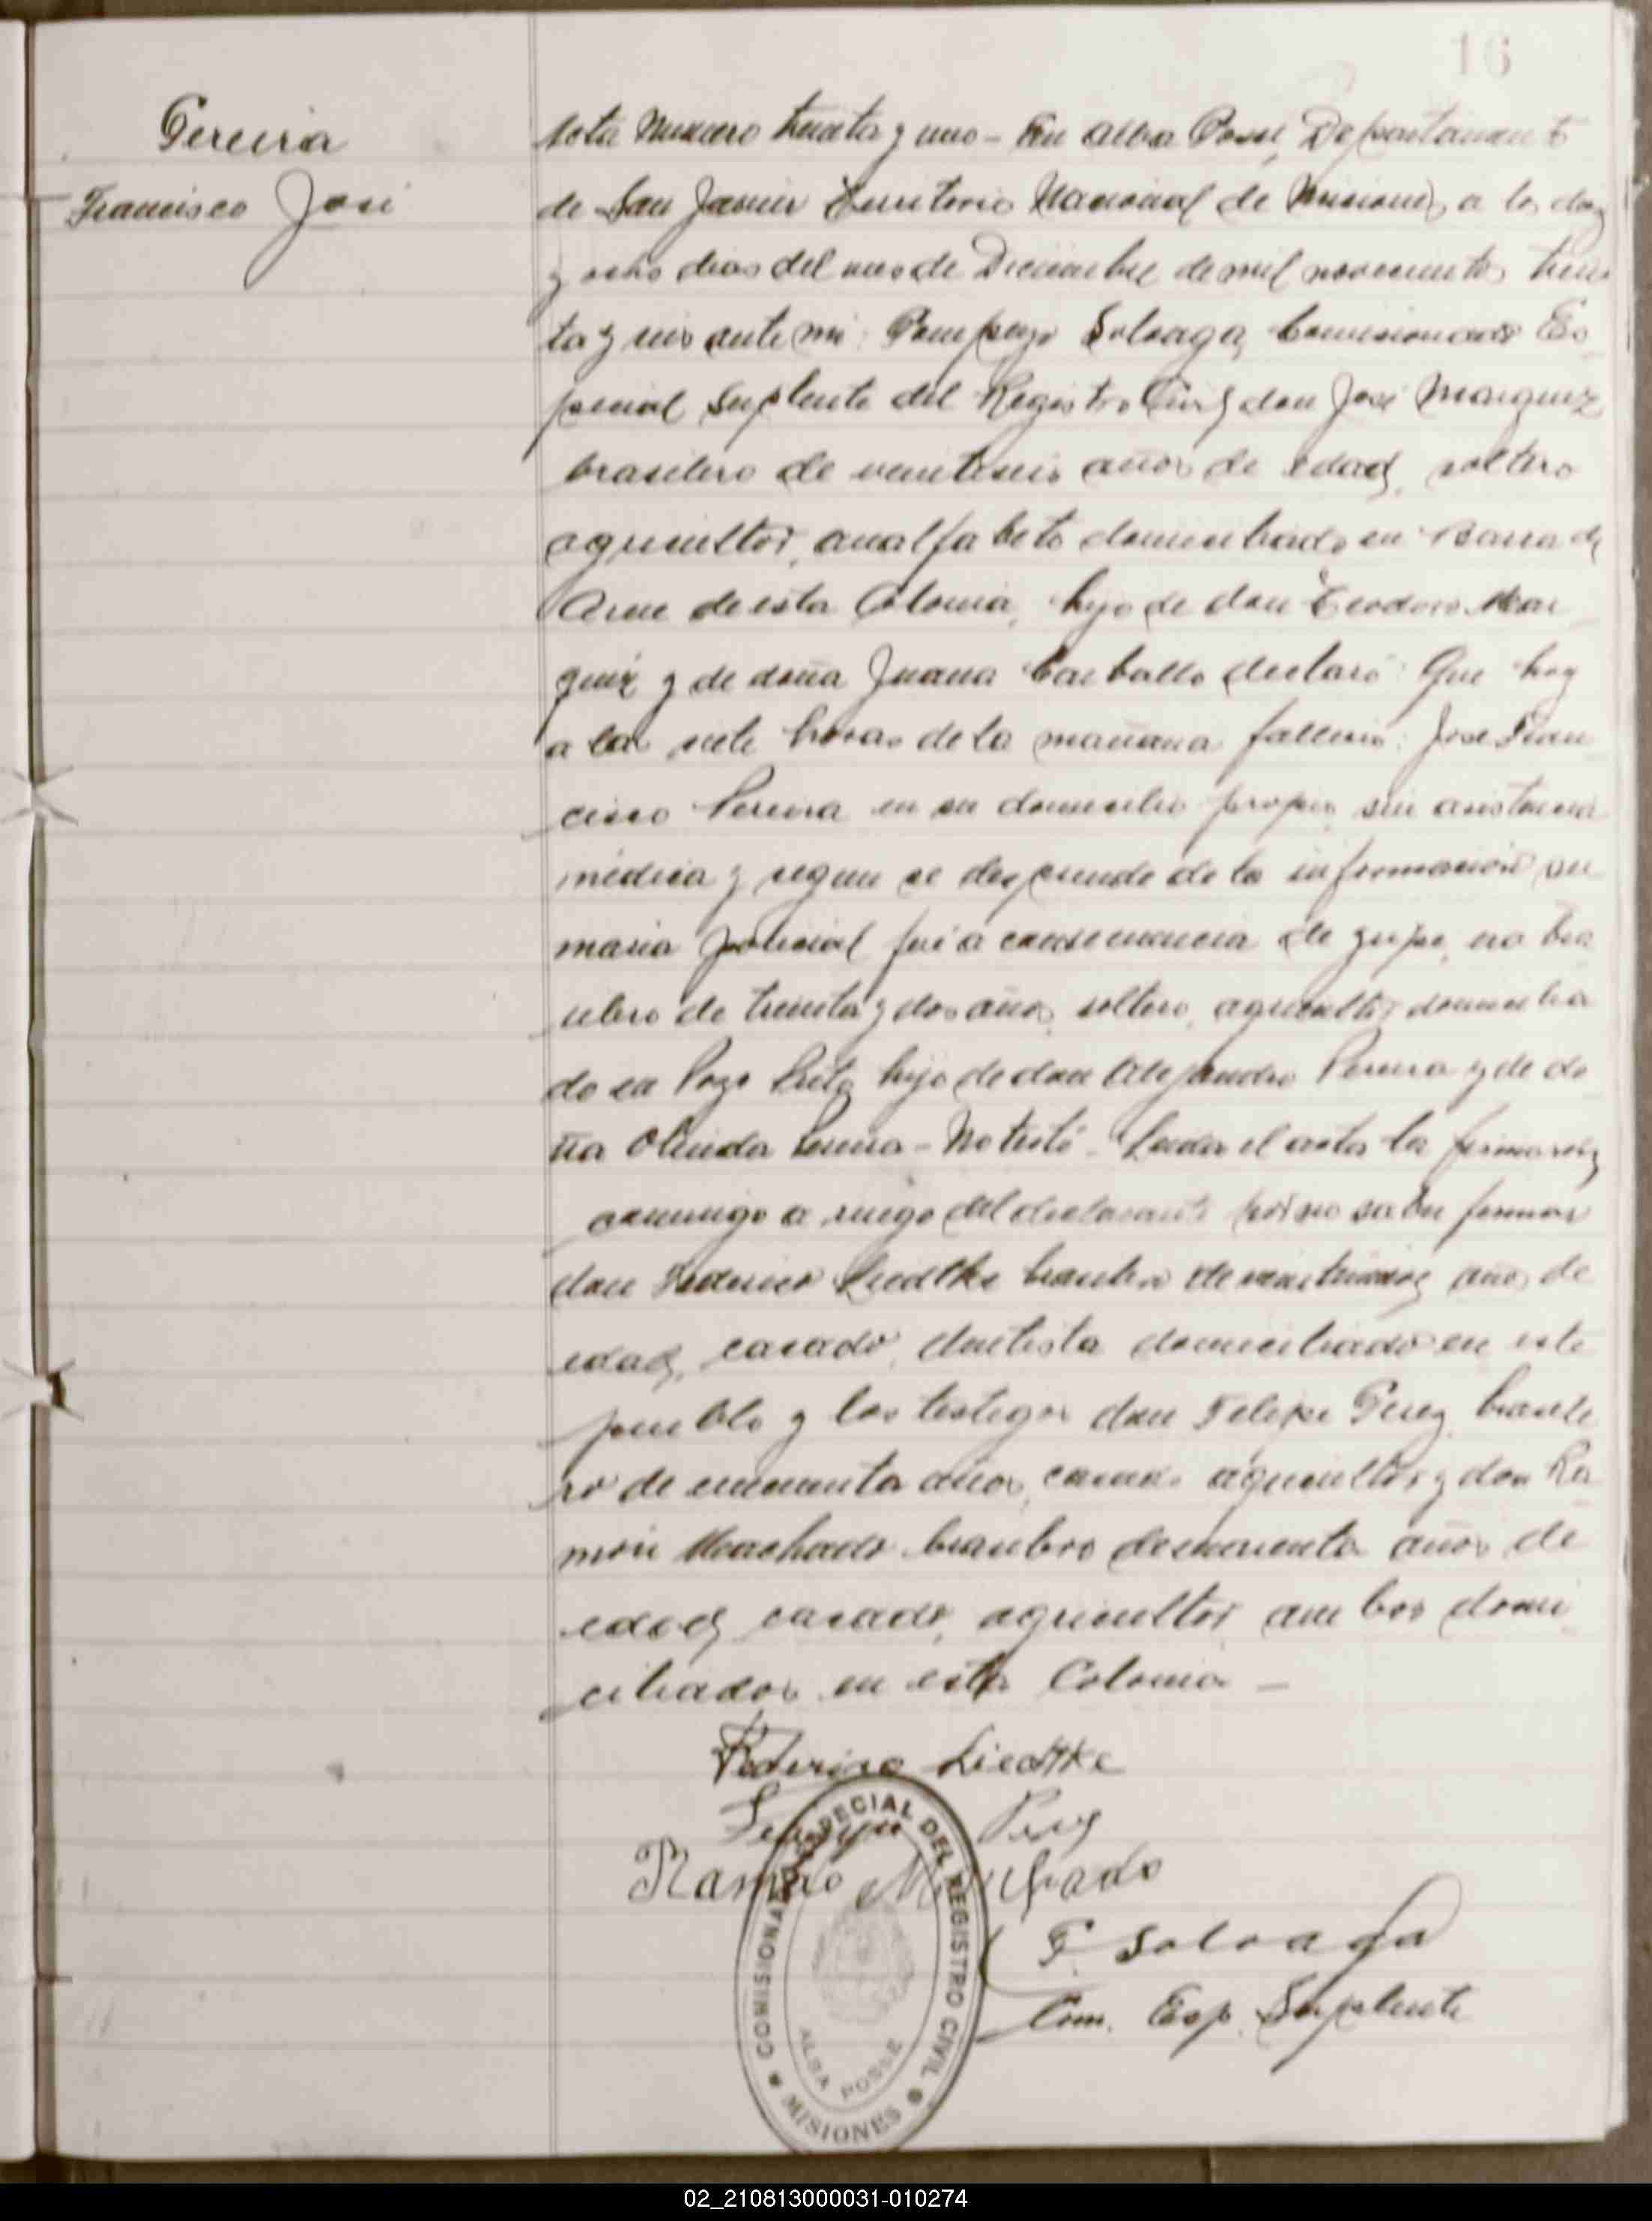 16
Pereira
Francisco José
Acta Numero treinta y uno - En Alba Posse, Departament
de San Javier Territorio Nacional de Misiones, a los diez
y ocho dias del mes de Diciembre de mil novecientos trein
ta y seis ante mi: Pompeyo Soloaga, Comisionado Es
pecial Suplente del Registro Civil don José Marquez
brasilero de veintiseis años de edad, soltero
agricultor, analfabeto domiciliado en Barra de
de esta Colonia, hijo de don Teodoro Mar
quez y de doña Juana Carballo declaró: Que hoy
a las siete horas de la mañana falleció: José Fran
cisco Pereira en su domicilio propio, sin asistencia
médica y segun se desprende de la información su
maria policial fué a consecuencia de gripe, era bra
silero de treinta y dos años, soltero, agricultor domicilia
do en Pozo hijo de don Alejandro Pereira y de do
ña Olinda Pereira - No testó - Leida el acta la firmaron
conmigo a ruego del declarante por no saber firmar
don Federico Liedtke brasilero de años de
edad, casado, dentista domiciliado en este
pueblo y los testigos don Felipe Perez, brasile
ro de cincuenta años, casado agricultor y don Ra
món Machado brasilero de cincuenta años de
edad casado, agricultor, ambos domi
ciliados en esta Colonia -
Federico Liedtke
Felipe Perez
Ramão Machado
P. Soloaga
Com. Esp. Suplente
COMISIONADO ESPECIAL DEL REGISTRO CIVIL
ALBA POSSE
MISIONES
02_210813000031-010274